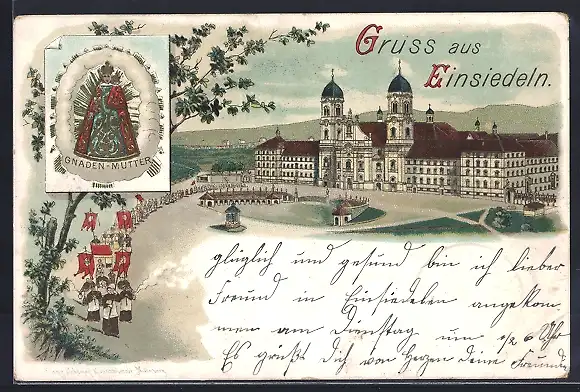 Gruss aus
Einsiedeln.
GNADEN-MUTTER
glüglich und gesund bin ich lieber
Freund in Einsiedelen angekom-
men am Dienstag um 1/2 6 Uhr
Es grüßt Dich von Herzen deine Freundin